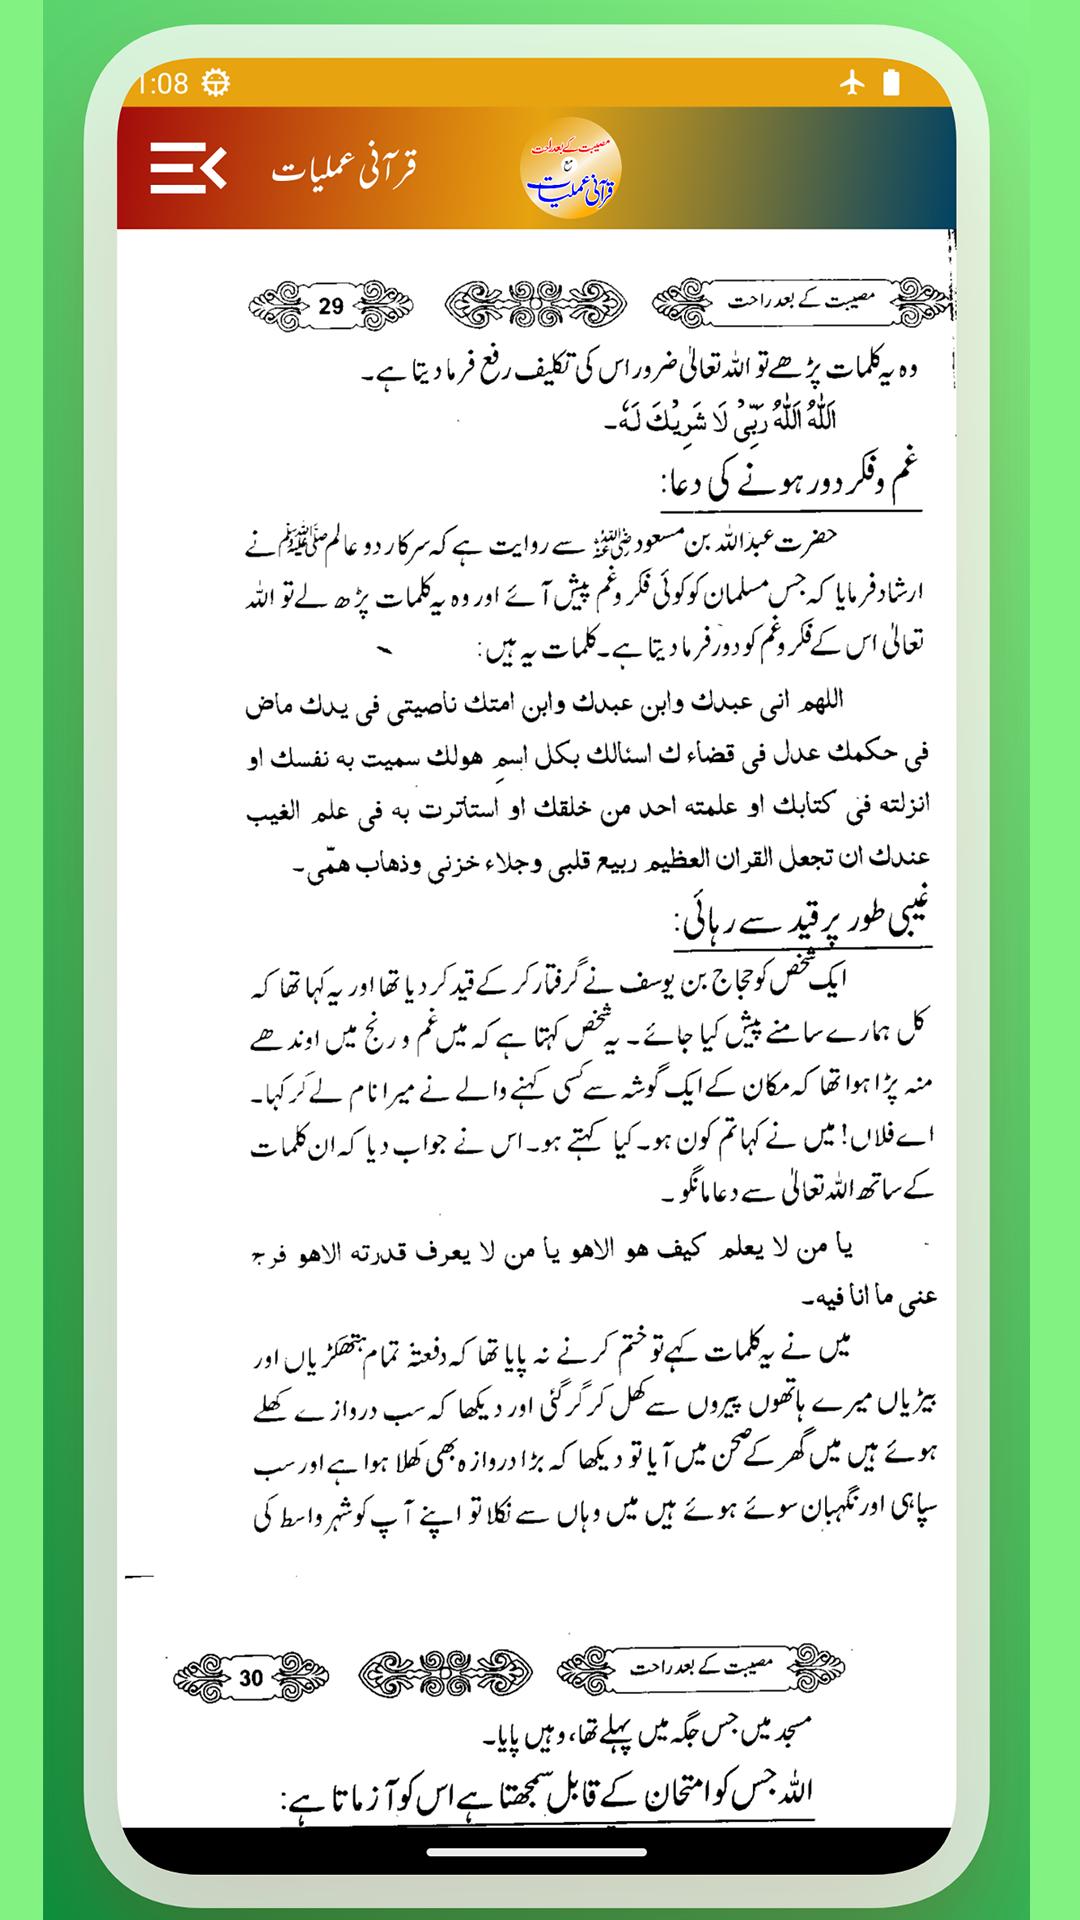 1:08
قرآنی عملیات
مصیبت کے بعد راحت
مع
قرآنی عملیات
مصیبت کے بعد راحت
29
وہ یہ کلمات پڑھے تو اللہ تعالیٰ ضرور اس کی تکلیف رفع فرما دیتا ہے۔
اَللّٰهُ اَللّٰهُ رَبِّیْ لَا شَرِیْكَ لَهٗ۔
غم و فکر دور ہونے کی دعا:
حضرت عبداللہ بن مسعود رضی اللہ عنہ سے روایت ہے کہ سرکار دو عالم ﷺ نے
ارشاد فرمایا کہ جس مسلمان کو کوئی فکر و غم پیش آئے اور وہ یہ کلمات پڑھ لے تو اللہ
تعالیٰ اس کے فکر و غم کو دور فرما دیتا ہے۔ کلمات یہ ہیں:
اللهم انی عبدك وابن عبدك وابن امتك ناصیتی فی یدك ماض
فی حکمك عدل فی قضاء ك اسئالك بکل اسم هولك سمیت به نفسك او
انزلته فی کتابك او علمته احد من خلقك او استأثرت به فی علم الغیب
عندك ان تجعل القران العظیم ربیع قلبی وجلاء خزنی وذهاب همّی۔
غیبی طور پر قید سے رہائی:
ایک شخص کو حجاج بن یوسف نے گرفتار کر کے قید کر دیا تھا اور یہ کہا تھا کہ
کل ہمارے سامنے پیش کیا جائے۔ یہ شخص کہتا ہے کہ میں غم و رنج میں اوندھے
منہ پڑا ہوا تھا کہ مکان کے ایک گوشہ سے کسی کہنے والے نے میرا نام لے کر کہا۔
اے فلاں! میں نے کہا تم کون ہو۔ کیا کہتے ہو۔ اس نے جواب دیا کہ ان کلمات
کے ساتھ اللہ تعالیٰ سے دعا مانگو۔
یا من لا یعلم کیف هو الاهو یا من لا یعرف قدرته الاهو فرج
عنی ما انا فیه۔
میں نے یہ کلمات کہے تو ختم کرنے نہ پایا تھا کہ دفعتہ تمام ہتھکڑیاں اور
بیڑیاں میرے ہاتھوں پیروں سے کھل کر گر گئی اور دیکھا کہ سب دروازے کھلے
ہوئے ہیں میں گھر کے صحن میں آیا تو دیکھا کہ بڑا دروازہ بھی کھلا ہوا ہے اور سب
سپاہی اور نگہبان سوئے ہوئے ہیں میں وہاں سے نکلا تو اپنے آپ کو شہر واسط کی
مصیبت کے بعد راحت
30
مسجد میں جس جگہ میں پہلے تھا، وہیں پایا۔
اللہ جس کو امتحان کے قابل سمجھتا ہے اس کو آزماتا ہے: